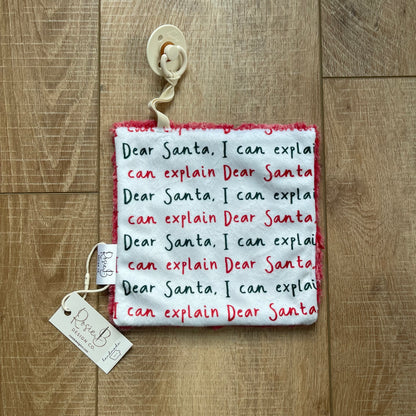 Dear Santa, I can explai
can explain Dear Santa
Dear Santa, I can explai
can explain Dear Santa
Dear Santa, I can explai
can explain Dear Santa
Dear Santa, I can explai
can explain Dear Santa
Rosie B
Rosie B
DESIGN CO.